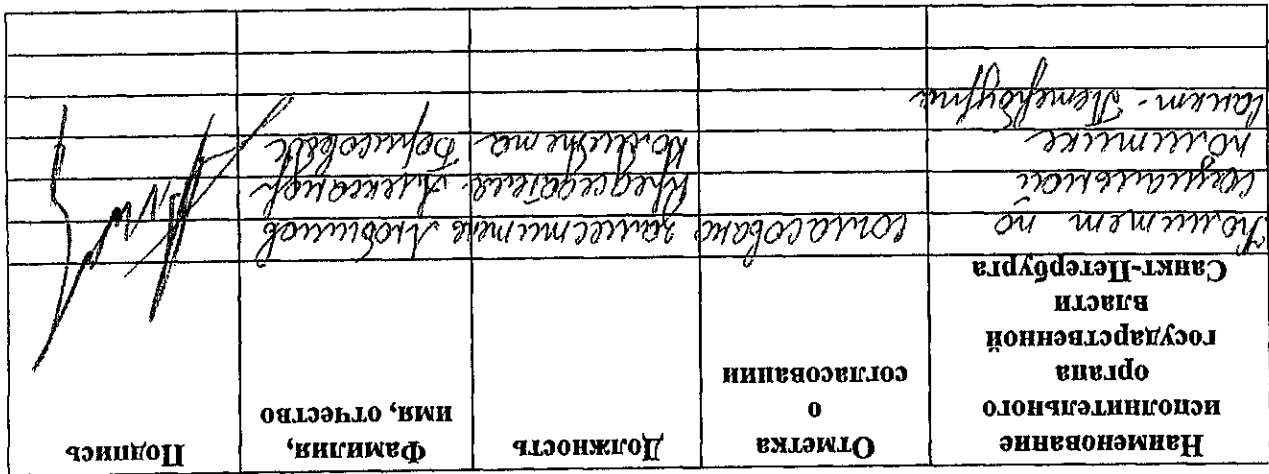 Наименование
исполнительного
органа
государственной
власти
Санкт-Петербурга
Отметка
о
согласовании
Должность
Фамилия,
имя, отчество
Подпись
Комитет по
социальной
политике
Санкт-Петербурга
согласовано
заместитель
председателя
Комитета
Любимов
Александр
Борисович